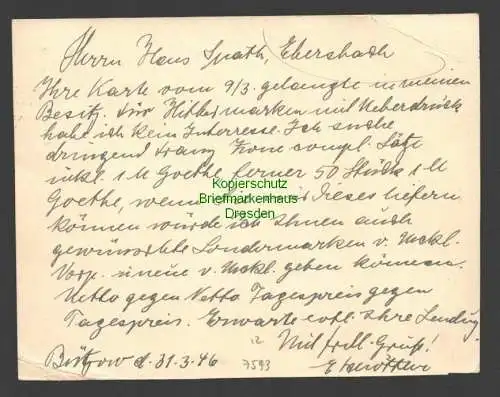 Herrn Hans Spath, Ebersbach
Ihre Karte vom 9/3. gelangte in meinen
Besitz. für Hitlermarken mit Ueberdruck
habe ich kein Interresse. Ich suche
dringend franz Zone compl. Sätze
inkl. 1 M Goethe, ferner 50 Stück 1 M
Goethe, wenn dieses liefern
können würde ich Ihnen auch
gewünschte Sondermarken v. Meckl.
Vorp. u neue v. Meckl. geben können.
Netto gegen Netto Tagespreis gegen
Tagespreis. Erwarte evtl. Ihre Sendung.
Mit frdl. Gruß!
Bützow d. 31.3.46
12
7593
Kopierschutz
Briefmarkenhaus
Dresden